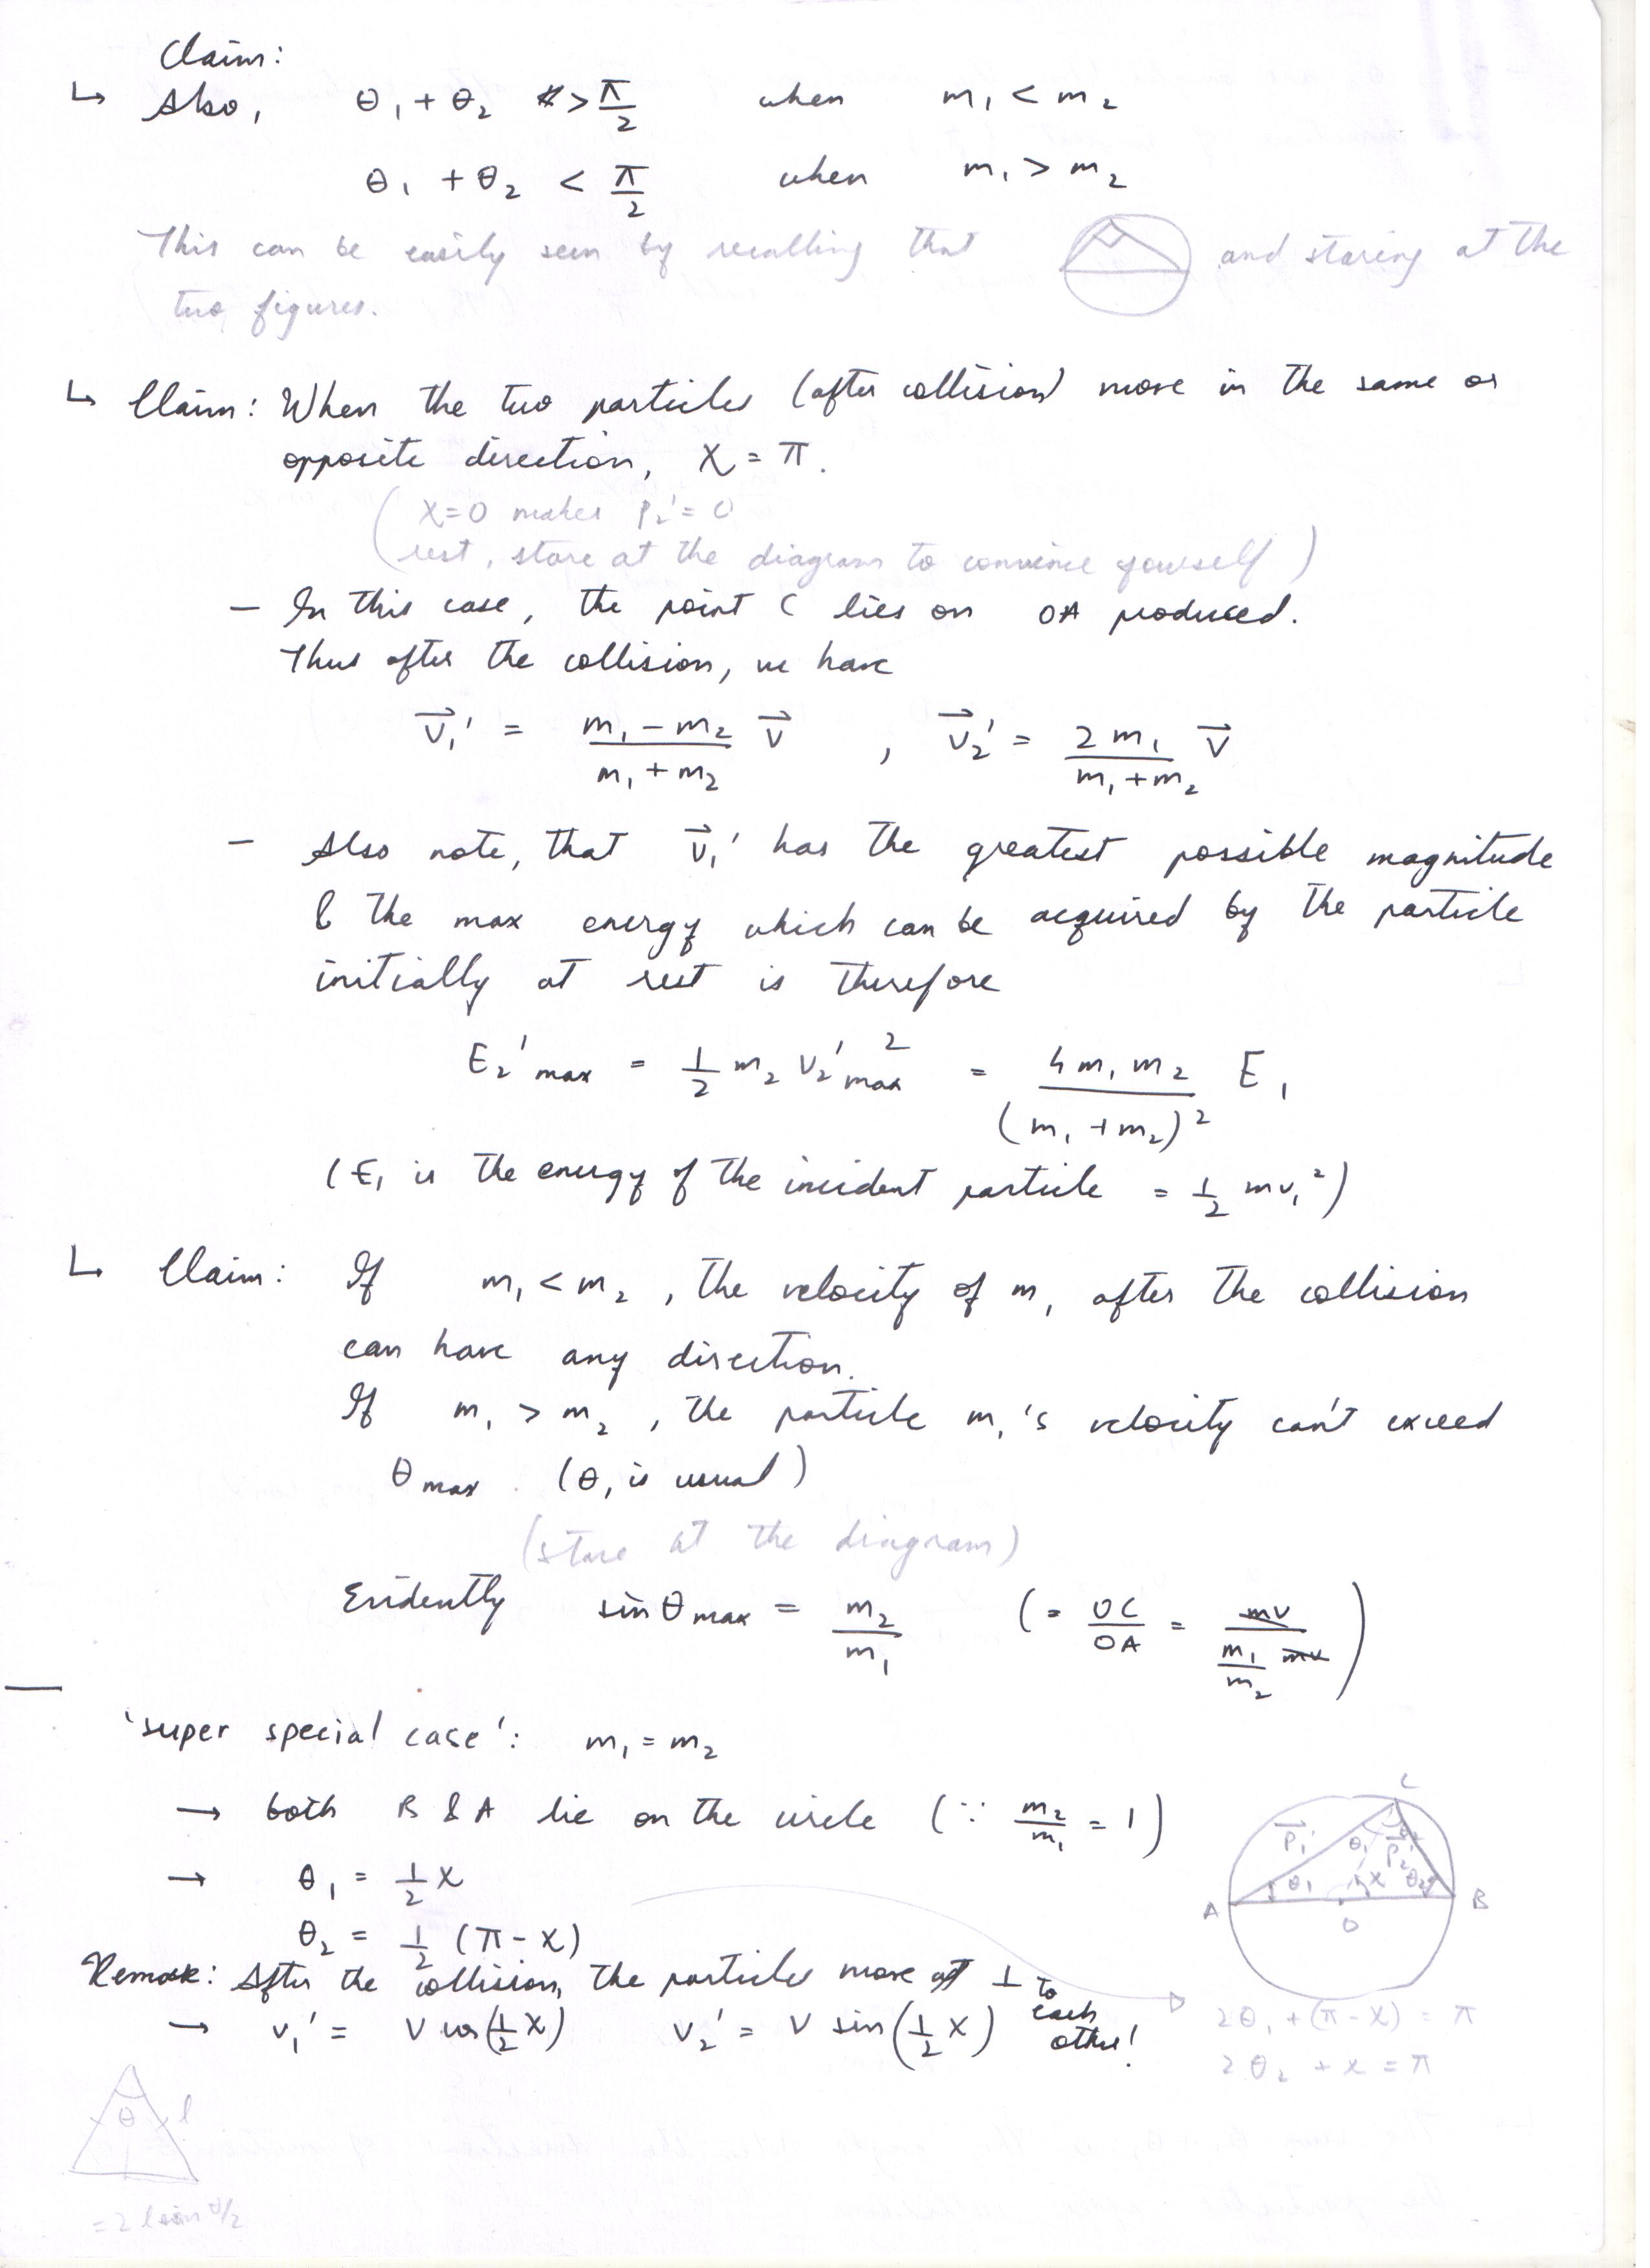 Claim:
↳ Also, θ₁ + θ₂ > π/2 when m₁ < m₂
θ₁ + θ₂ < π/2 when m₁ > m₂
This can be easily seen by recalling that and staring at the
two figures.
↳ Claim: When the two particles (after collision) move in the same or
opposite direction, χ = π.
(χ=0 makes p₂' = 0
rest, stare at the diagram to convince yourself)
– In this case, the point C lies on OA produced.
Thus after the collision, we have
v⃗₁' = (m₁ − m₂)/(m₁ + m₂) v⃗ , v⃗₂' = 2m₁/(m₁ + m₂) v⃗
– Also note, that v⃗₁' has the greatest possible magnitude
& the max energy which can be acquired by the particle
initially at rest is therefore
E₂'max = 1/2 m₂ v₂'max² = 4m₁m₂/(m₁ + m₂)² E₁
(E₁ is the energy of the incident particle = 1/2 mv₁²)
↳ Claim: If m₁ < m₂, the velocity of m₁ after the collision
can have any direction.
If m₁ > m₂, the particle m₁'s velocity can't exceed
θmax. (θ₁ is usual)
(stare at the diagram)
Evidently sin θmax = m₂/m₁ (= OC/OA = mv/(m₁/m₂ mv))
'super special case': m₁ = m₂
→ both B & A lie on the circle (∵ m₂/m₁ = 1)
→ θ₁ = 1/2 χ
θ₂ = 1/2 (π − χ)
Remark: After the collision, the particles move at ⊥ to each other!
→ v₁' = v cos(1/2 χ) v₂' = v sin(1/2 χ)
C
p⃗₁' θ₁ θ₂ p⃗₂'
A θ₁ χ θ₂ B
O
2θ₁ + (π − χ) = π
2θ₂ + χ = π
θ l
= 2 l sin θ/2